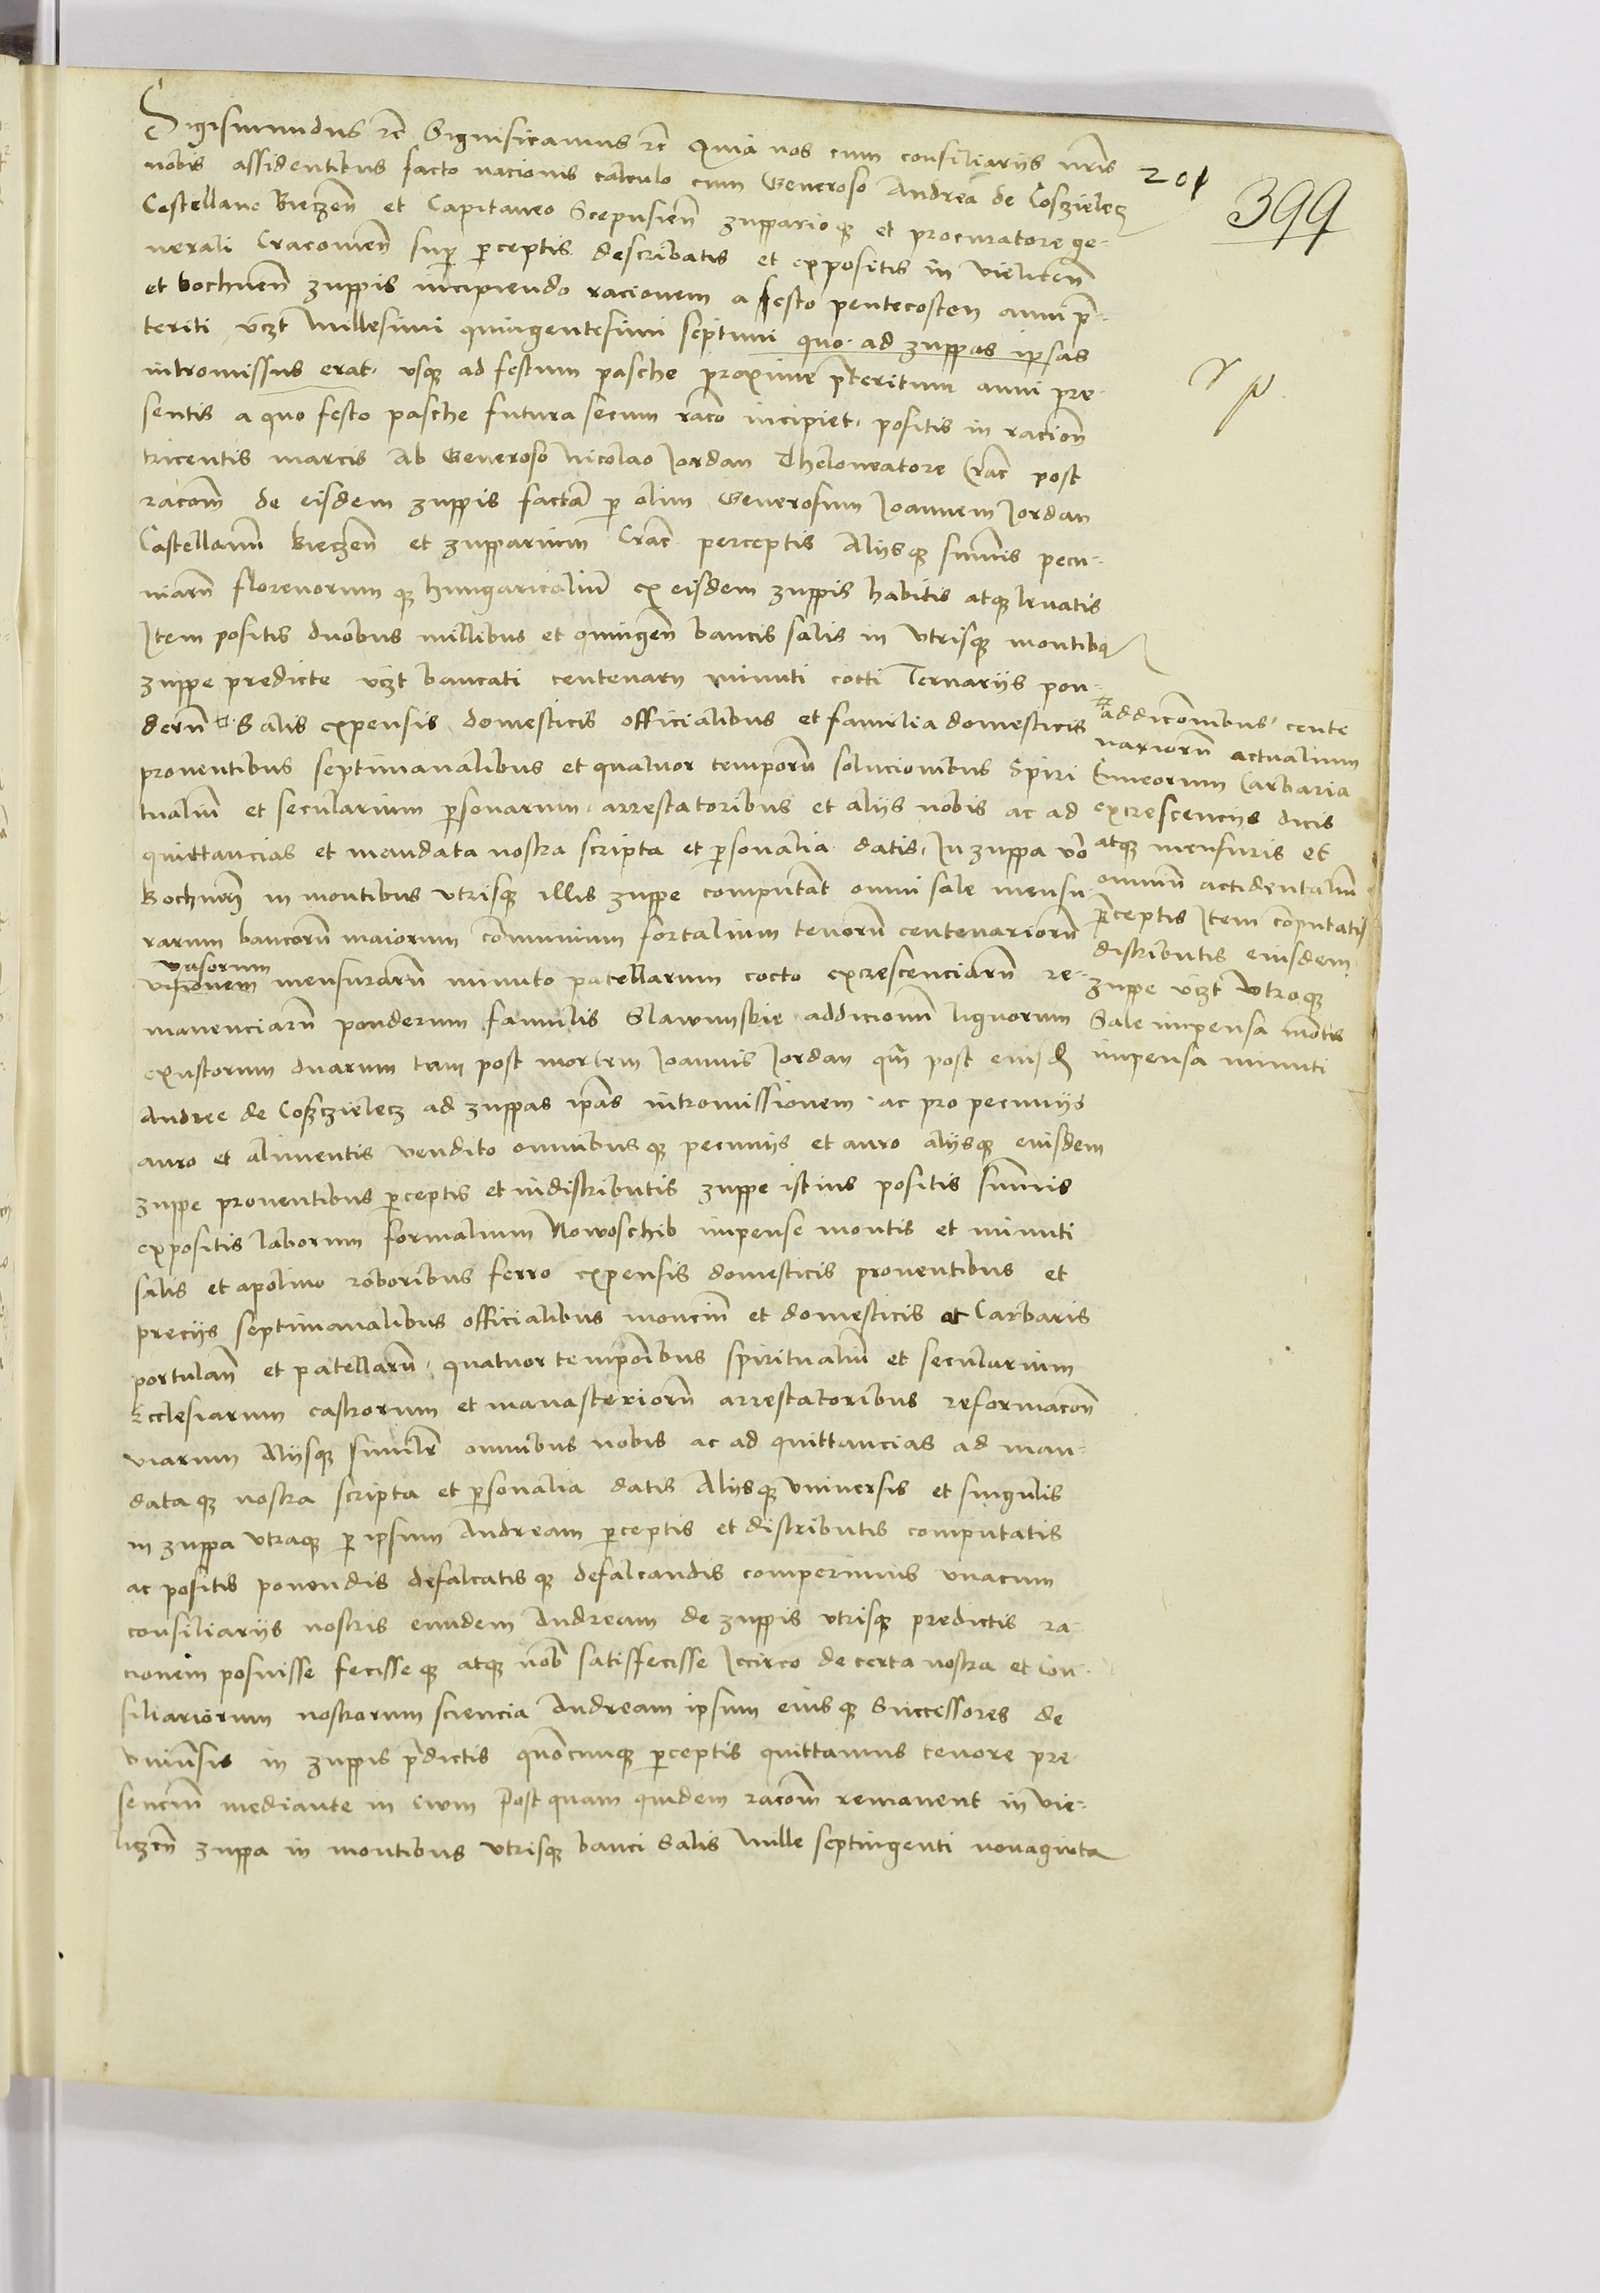 Sigismundus rc Significamus rc Quia nos cum consiliariis nris
nobis assidentibus facto racionis calculo cum Generoso Andrea de Cosczielecz
Castellano Biezen et Capitaneo Scepusien zuppario q et procuratore ge-
nerali Cracovien sup perceptis describatis et expositis in vielicen
et bochnen zuppis incipiendo racionem a festo pentecosten anni p-
teriti uczt Millesimi quingentesimi septimi quo ad zuppas ipsas
intromissus erat, usq ad festum pasche proxime pteritum anni pre-
sentis a quo festo pasche futura secum raco incipiet, positis in racion
tricentis marcis Ab Generoso Nicolao Jordan Theloneatore Crac post
racom de eisdem zuppis facta p olim Generosum Joannem Jordan
Castellanu Biezen et zupparium Crac perceptis Aliisq summis pecu-
niaru florenorum q hungaricaliu ex eisdem zuppis habitis atq levatis
Item positis duobus millibus et quingen bancis salis in utrisq montibq
zuppe predicte uczt bancati centenary minuti cocti Ternariis pon-
deru Salis expensis domesticis officialibus et familia domesticis
proventibus septimanalibus et quatuor temporu solucionibus Spiri
tualiu et secularium personarum, arrestatoribus et aliis nobis ac ad
quittancias et mandata nostra scripta et personalia datis, In zuppa vo
Bochnen in montibus utrisq illis zuppe computat omni sale mensu
rarum bancoru maiorum communium fortalium tenoru centenarioru
vasorum
visionem mensuraru minuto patellarum cocto excrescenciaru re-
manenciaru ponderum famulis Slawynskie addicionu lignorum
exustorum duarum tam post mortem Joannis Jordan qm post eiusd
Andree de Coszczielecz ad zuppas ipas intromissionem ac pro pecuniis
auro et alimentis vendito omnibus q pecuniis et auro aliisq eiusdem
zuppe proventibus perceptis et indistributis zuppe istius positis summis
expositis laborum formalium Nowoschib impense montis et minuti
salis et apolino roboribus ferro expensis domesticis proventibus et
preciis septimanalibus officialibus monciu et domesticis ac Carbaris
portulan et patellaru, quatuor temporibus spiritualiu et secularium
Ecclesiarum castrorum et manasterioru arrestatoribus reformacon
viarum Aliisq similr omnibus nobis ac ad quittancias ad man-
data q nostra scripta et personalia datis Aliisq universis et singulis
in zuppa utraq p ipsum Andream perceptis et distributis computatis
ac positis ponendis defalcatis q defalcandis comperimus unacum
consiliariis nostris eundem Andream de zuppis utrisq predictis ra-
cionem posuisse fecisse q atq nob satisfecisse Iccirco de certa nostra et con-
siliariorum nostrorum sciencia Andream ipsum eius q Successores de
universis in zuppis pdictis quocunq perceptis quittamus tenore pre-
senciu mediante in evum Post quam quidem racom remanent in vie-
liczen zuppa in montibus utrisq banci Salis Mille septingenti nonaginta
201
399
addiconibus cente
narioru actualium
Carbaria
excrescenciis dicis
atq mensuris et
omniu actidentaliu
perceptis Item computatis
distributis eiusdem
zuppe uczt Utroq
Sale impensa motis
impensa minuti